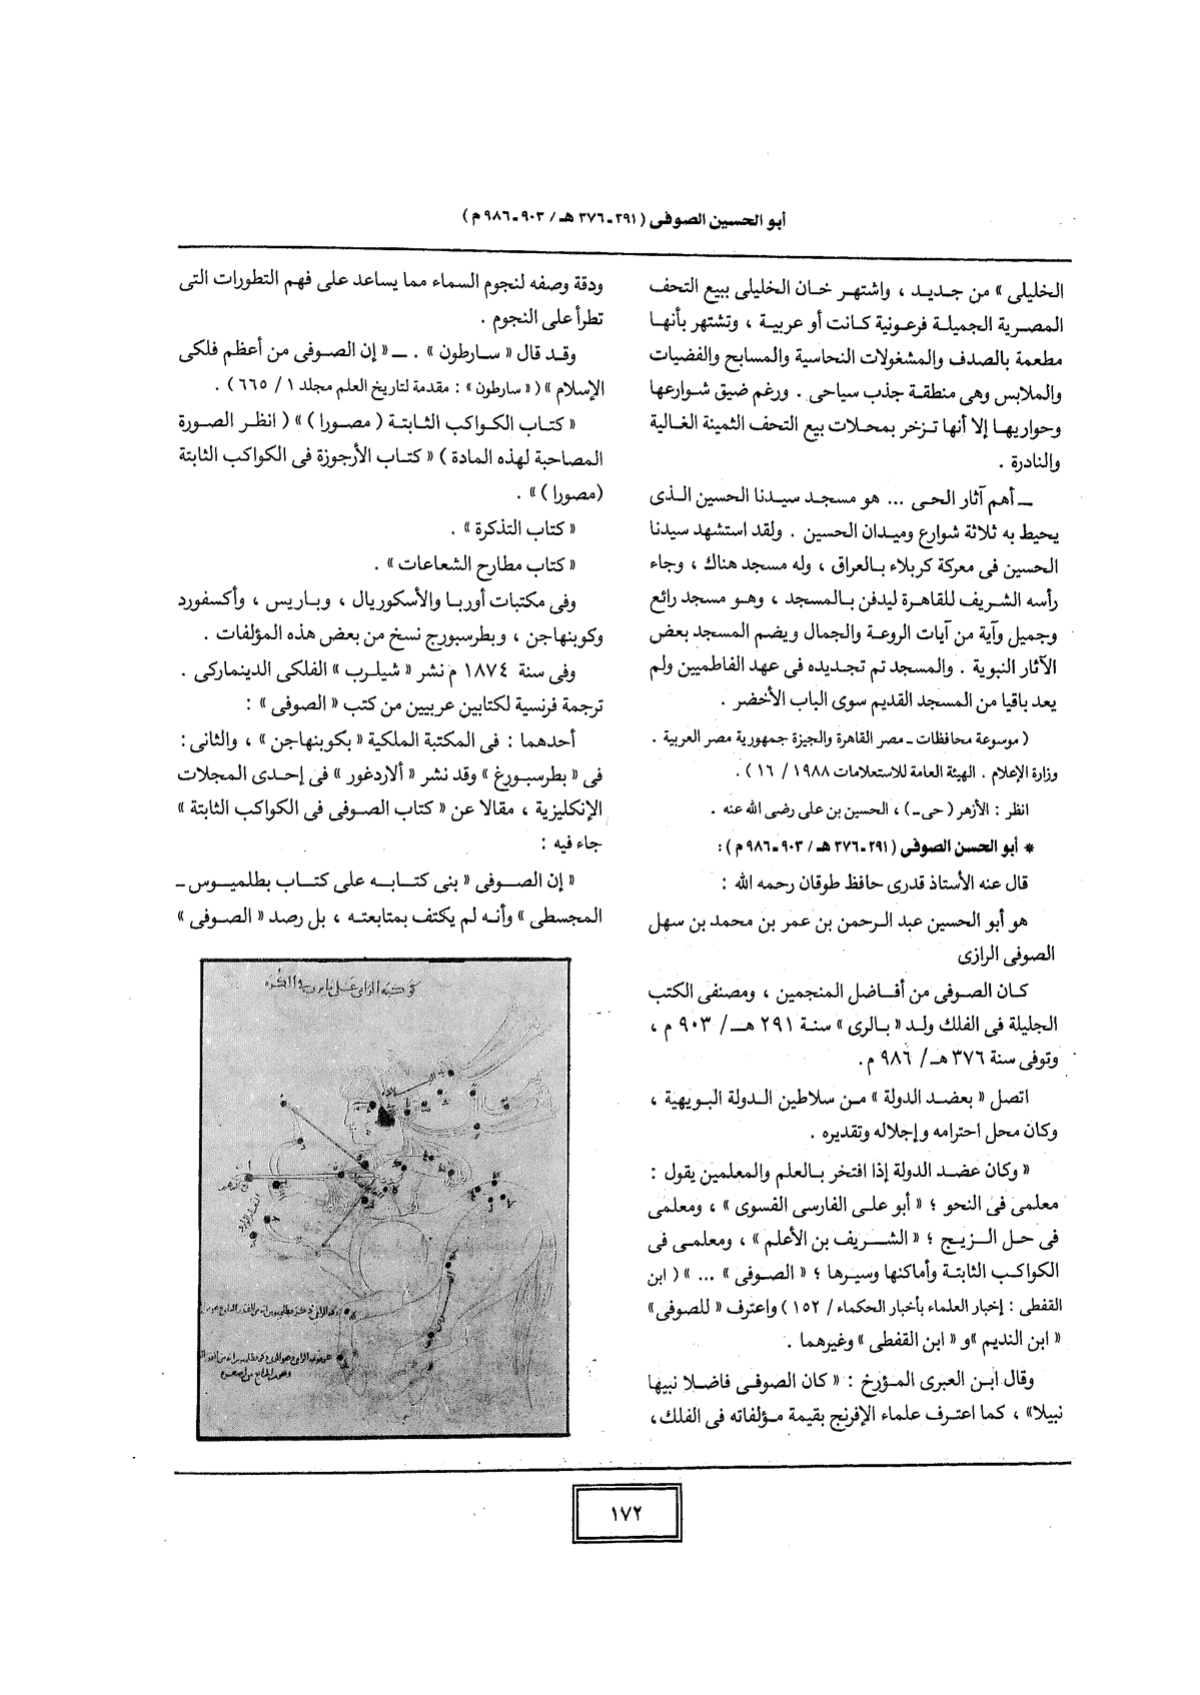 أبو الحسين الصوفى ( ٢٩١ ـ ٣٧٦ هـ / ٩٠٣ ـ ٩٨٦ م )
الخليلى » من جـديـد ، واشتهـر خـان الخليلى ببيع التحف
المصـرية الجميلـة فرعـونية كـانت أو عربيـة ، وتشتهر بأنهـا
مطعمة بالصدف والمشغولات النحاسية والمسابح والفضيات
والملابس وهى منطقـة جذب سياحى . ورغم ضيق شـوارعها
وحواريهـا إلا أنها تـزخر بمحـلات بيع التحف الثمينة الغـالية
والنادرة .
ـ أهم آثار الحـى ... هو مسجـد سيـدنا الحسين الـذى
يحيط به ثلاثة شوارع وميـدان الحسين . ولقد استشهد سيدنا
الحسين فى معركة كربلاء بـالعراق ، وله مسجد هناك ، وجاء
رأسه الشـريف للقاهـرة ليدفن بـالمسجد ، وهـو مسجد رائع
وجميل وآية من آيات الروعـة والجمال ويضم المسجد بعض
الآثار النبوية . والمسجد تم تجـديده فى عهد الفاطميين ولم
يعد باقيا من المسجد القديم سوى الباب الأخضر .
( موسوعة محافظات ـ مصر القاهرة والجيزة جمهورية مصر العربية .
وزارة الإعلام . الهيئة العامة للاستعلامات ١٩٨٨ / ١٦ ) .
انظر : الأزهر ( حى ـ ) ، الحسين بن على رضى الله عنه .
* أبو الحسن الصوفى ( ٢٩١ ـ ٣٧٦ هـ / ٩٠٣ ـ ٩٨٦ م ) :
قال عنه الأستاذ قدرى حافظ طوقان رحمه الله :
هو أبو الحسين عبد الـرحمن بن عمر بن محمد بن سهل
الصوفى الرازى
كـان الصـوفى من أفـاضل المنجمين ، ومصنفى الكتب
الجليلة فى الفلك ولـد « بـالرى » سنـة ٢٩١ هـ / ٩٠٣ م ،
وتوفى سنة ٣٧٦ هـ / ٩٨٦ م .
اتصل « بعضـد الدولة » مـن سلاطين الـدولة البـويهية ،
وكان محل احترامه وإجلاله وتقديره .
« وكان عضـد الدولة إذا افتخر بـالعلم والمعلمين يقول :
معلمى فى النحو ؛ « أبو على الفارسى الفسوى » ، ومعلمى
فى حـل الـزيـج ؛ « الشـريف بن الأعلم » ، ومعلمـى فى
الكواكب الثابتـة وأماكنها وسيـرها ؛ « الصـوفى » ... » ( ابن
القفطى : إخبار العلماء بأخبار الحكماء / ١٥٢ ) واعترف « للصوفى »
« ابن النديم » و « ابن القفطى » وغيرهما .
وقال ابـن العبرى المـؤرخ : « كان الصوفـى فاضـلا نبيها
نبيلا » ، كما اعتـرف علماء الإفرنج بقيمة مـؤلفاته فى الفلك ،
ودقة وصفه لنجوم السماء مما يساعد على فهم التطورات التى
تطرأ على النجوم .
وقـد قال « سـارطون » . ـ « إن الصـوفى من أعظم فلكى
الإسلام » ( « سارطون » : مقدمة لتاريخ العلم مجلد ١ / ٦٦٥ ) .
« كتـاب الكـواكب الثـابتـة ( مصـورا ) » ( انظـر الصـورة
المصاحبة لهذه المادة ) « كتـاب الأرجوزة فى الكواكب الثابتة
( مصورا ) » .
« كتاب التذكرة » .
« كتاب مطارح الشعاعات » .
وفى مكتبات أوربـا والأسكوريال ، وبـاريس ، وأكسفورد
وكوبنهاجن ، وبطرسبورج نسخ من بعض هذه المؤلفات .
وفى سنة ١٨٧٤ م نشر « شيلـرب » الفلكى الدينماركى .
ترجمة فرنسية لكتابين عربيين من كتب « الصوفى » :
أحدهما : فى المكتبة الملكية « بكوبنهاجن » ، والثانى :
فى « بطرسبـورغ » وقد نشر « ألاردغور » فى إحـدى المجلات
الإنكليزية ، مقالا عن « كتاب الصوفى فى الكواكب الثابتة »
جاء فيه :
« إن الصـوفى « بنى كتـابـه على كتـاب بطلميـوس ـ
المجسطى » وأنـه لم يكتف بمتابعتـه ، بل رصد « الصـوفى »
١٧٢